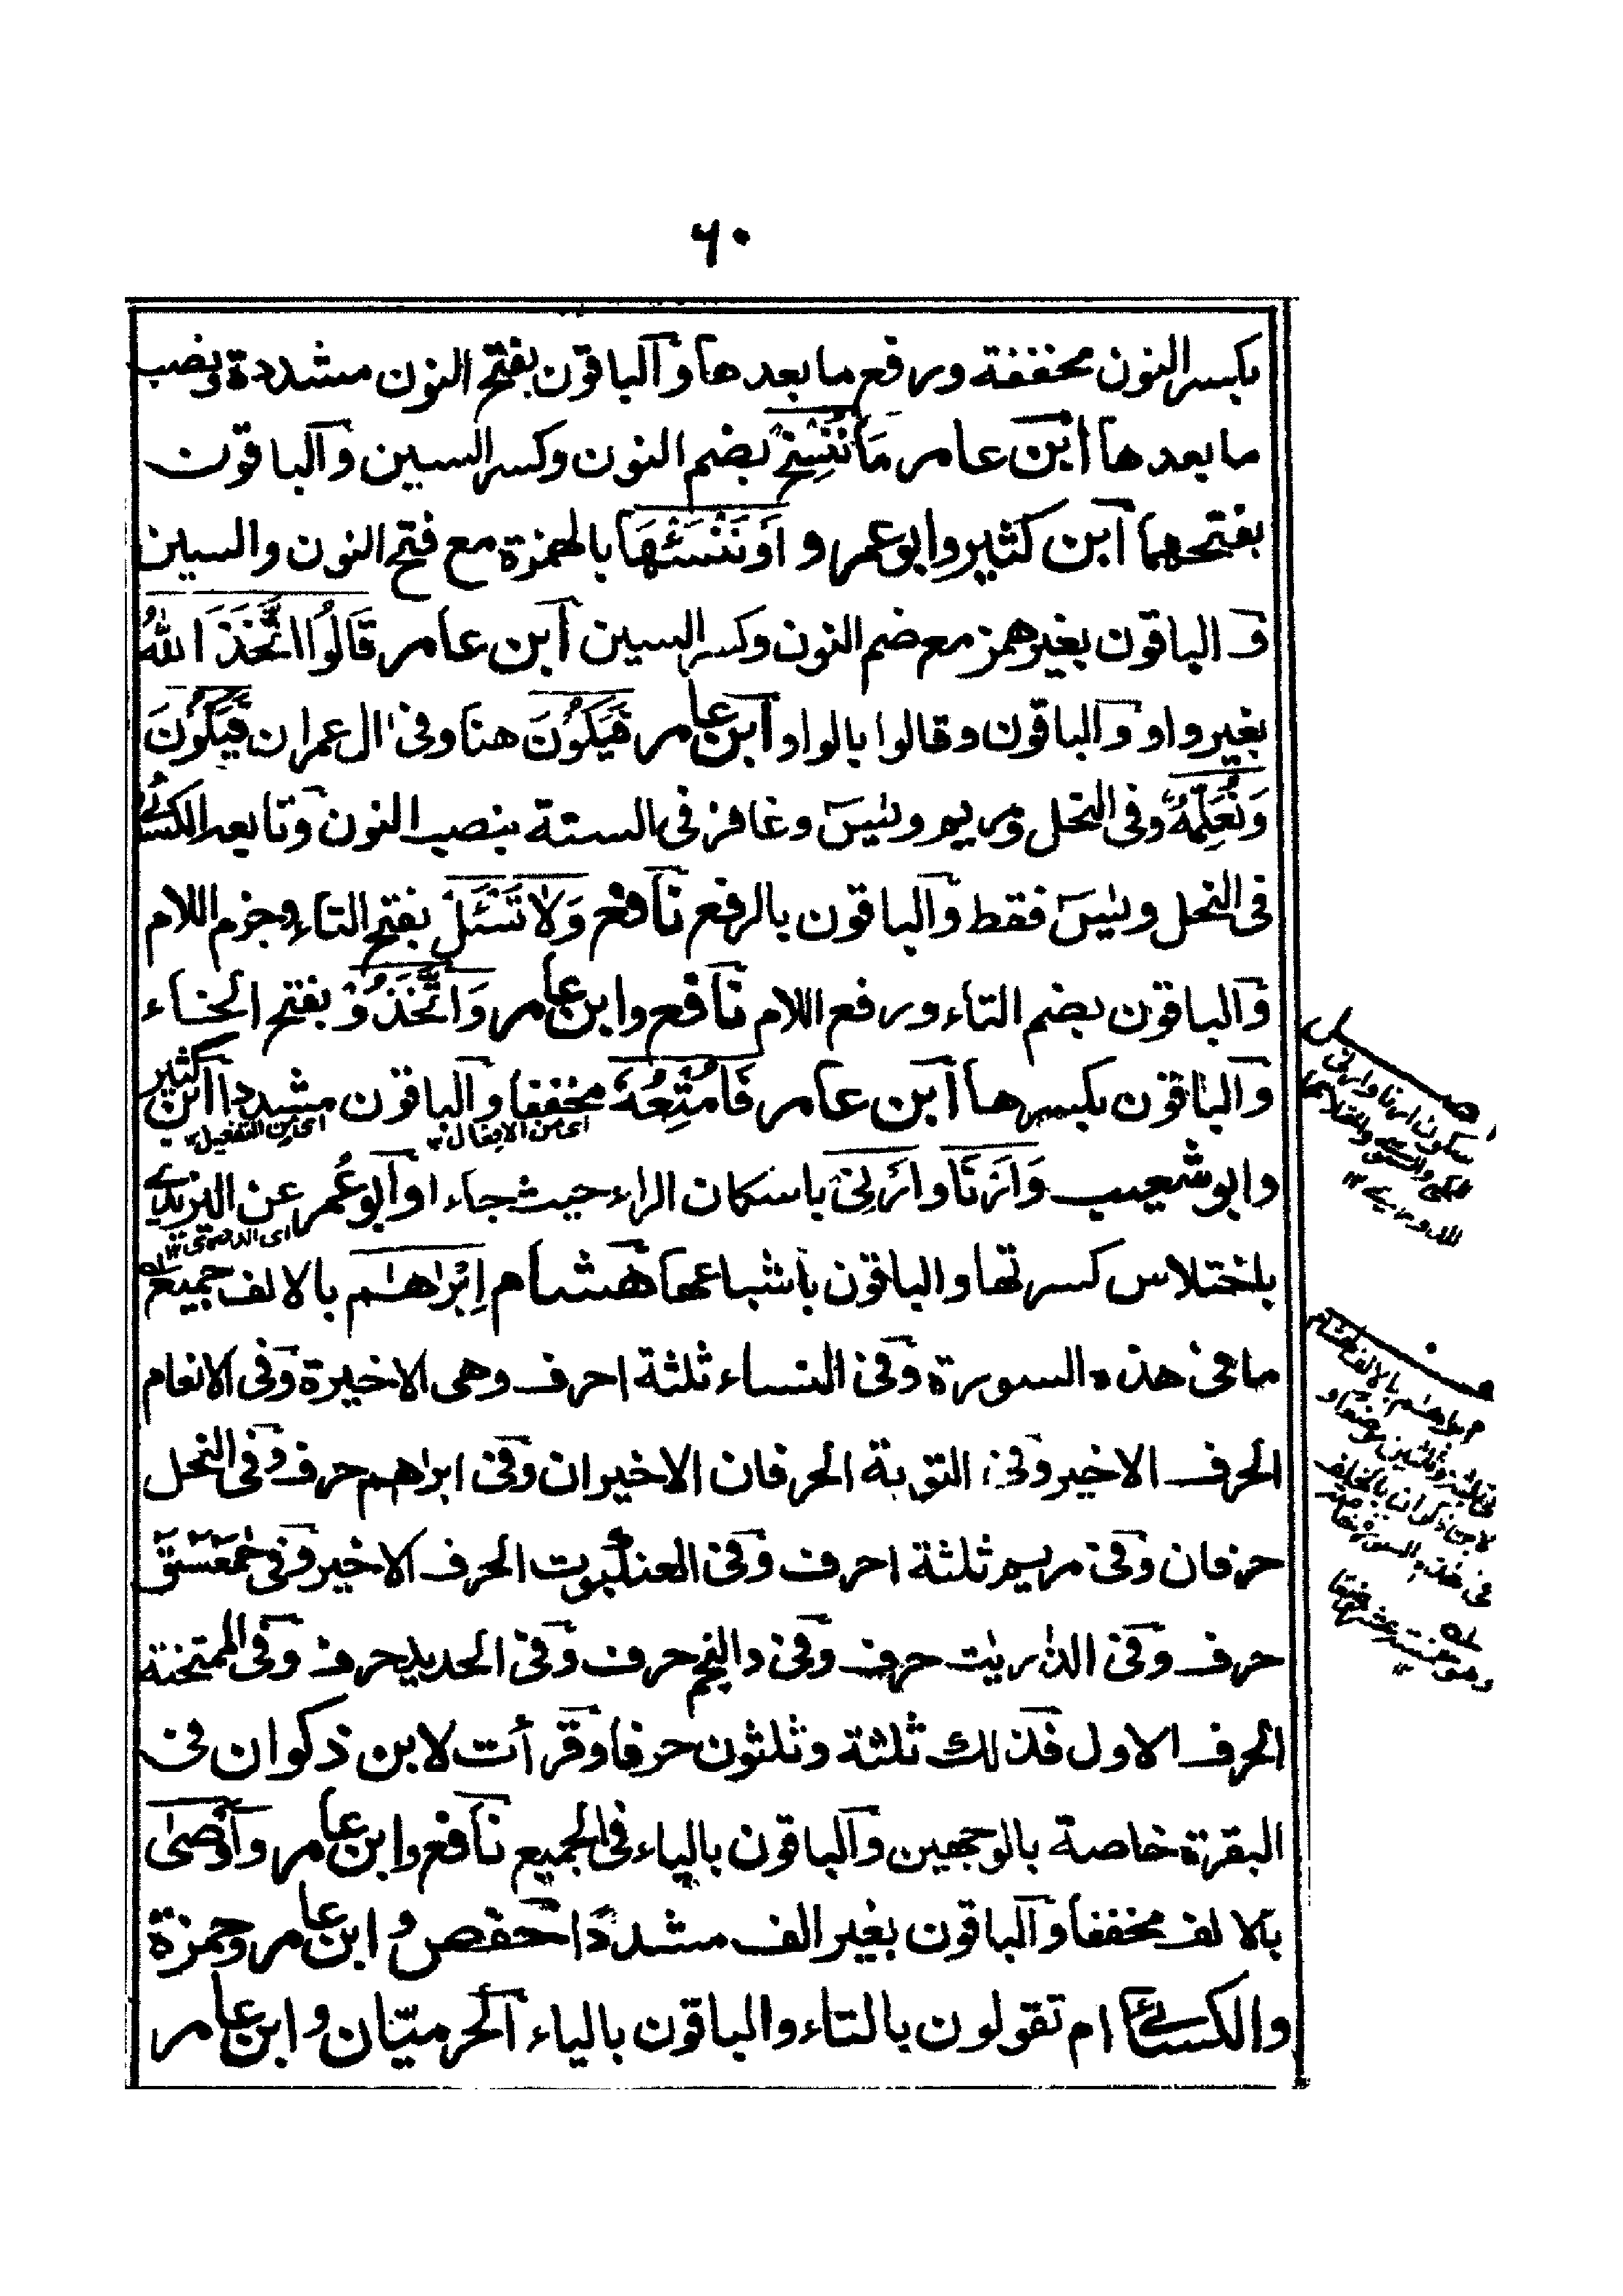 ٦٠
بكسر النون مخففة ورفع ما بعدها والباقون بفتح النون مشددة ونصب
ما بعدها ابن عامر مَا نُنْسِخْ بضم النون وكسر السين والباقون
بفتحهما ابن كثير وابو عمرو اَوْ نَنْسَئْهَا بالهمزة مع فتح النون والسين
والباقون بغير همز مع ضم النون وكسر السين ابن عامر قَالُوا اتَّخَذَ اللهُ
بغير واو والباقون وقالوا بالواو ابن عامر فَيَكُوْنَ هنا وفى ال عمران فَيَكُوْنَ
وَنُعَلِّمُهُ وفى النحل ومريم ويٰسٓ وغافر فى الستة بنصب النون وتابعه الكسائى
فى النحل ويٰسٓ فقط والباقون بالرفع نافع وَلَا تَسْئَلْ بفتح التاء وجزم اللام
والباقون بضم التاء ورفع اللام نافع وابن عامر وَاتَّخَذُوْ بفتح الخاء
والباقون بكسرها ابن عامر فَاُمْتِعُهٗ مخففا والباقون مشددا ابن كثير
اى من الافعال ١٢ اى من التفعيل ١٢
وابو شعيب وَاَرْنَا وارْنِىْ باسكان الراء حيث جاءا وابو عُمر عن اليزيدى
اى الدورى ١٢
باختلاس كسرتها والباقون باشباعها هشام اِبْرَاهٰم بالالف جميع
ما فى هذه السورة وفى النساء ثلثة احرف وهى الاخيرة وفى الانعام
الحرف الاخير وفى التوبة الحرفان الاخيران وفى ابراهيم حرف وفى النحل
حرفان وفى مريم ثلثة احرف وفى العنكبوت الحرف الاخير وفى حٰمٓعٓسٓقٓ
حرف وفى الذٰريٰت حرف وفى والنجم حرف وفى الحديد حرف وفى الممتحنة
الحرف الاول فذلك ثلثة وثلثون حرفا وقرأت لابن ذكوان فى
البقرة خاصة بالوجهين والباقون بالياء فى الجميع نافع وابن عامر وَاَوْصٰى
بالالف مخففا والباقون بغير الف مشددًا حفص وابن عامر وحمزة
والكسائى ام تقولون بالتاء والباقون بالياء الحرميّان وابن عامر